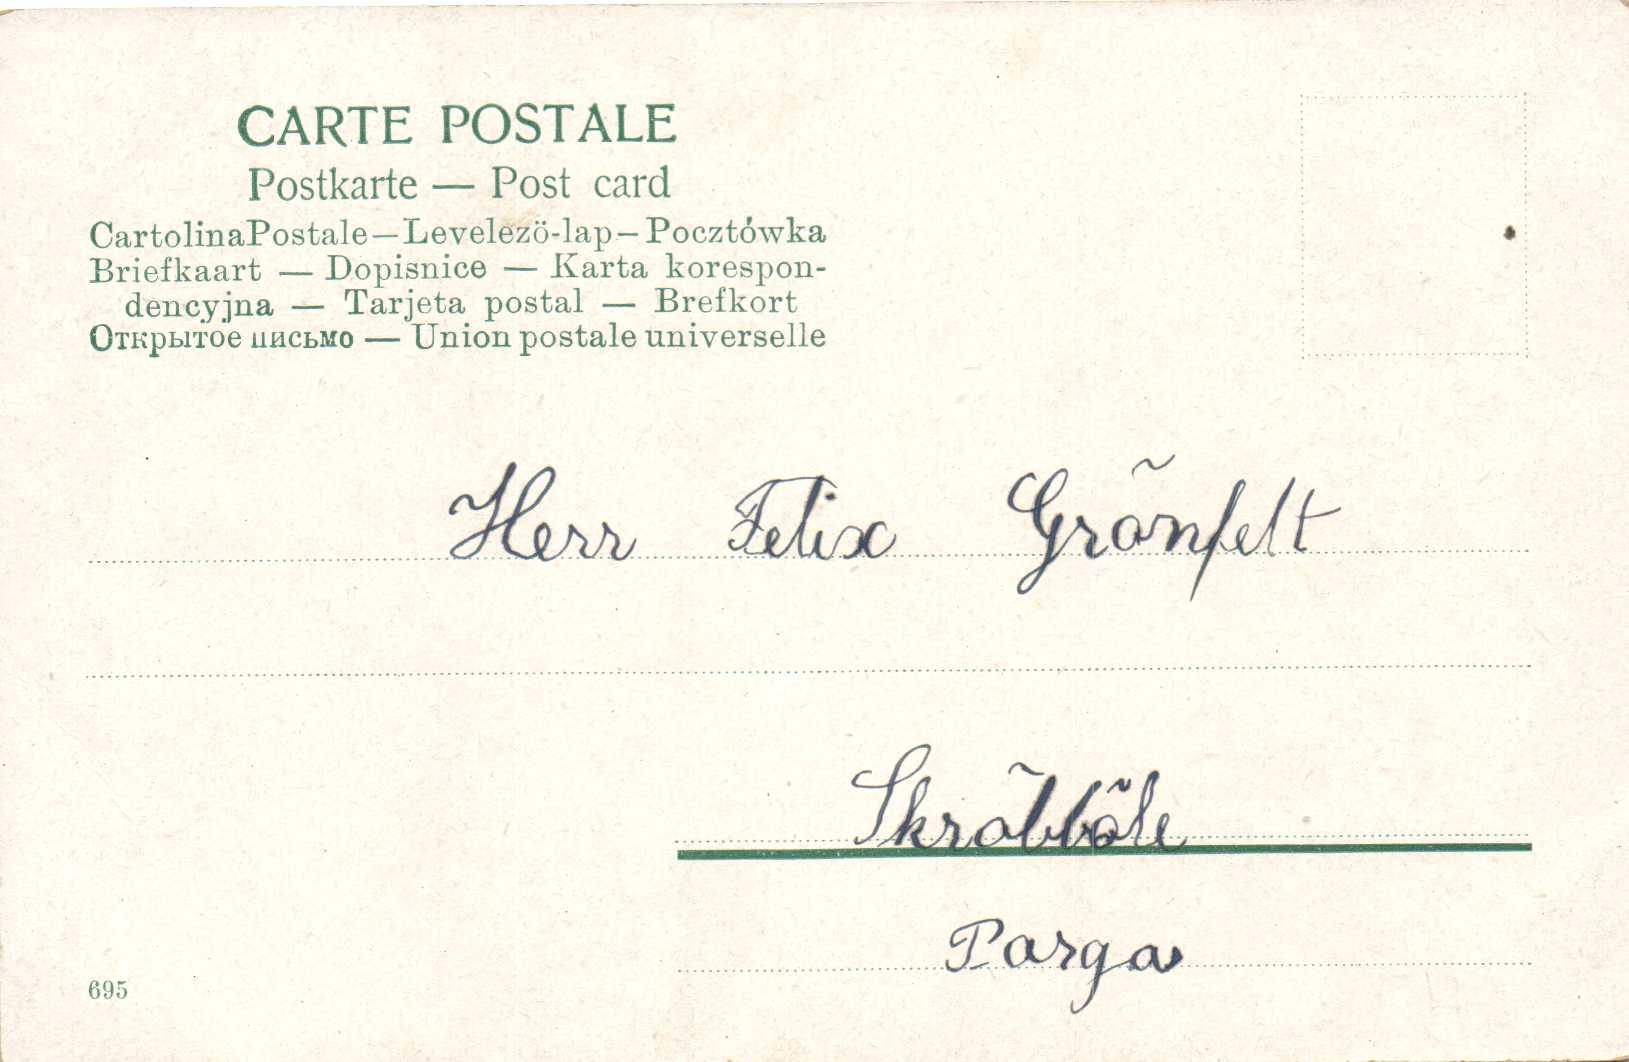 CARTE POSTALE
Postkarte — Post card
Cartolina Postale — Levelezö-lap — Pocztówka
Briefkaart — Dopisnice — Karta korespon-
dencyjna — Tarjeta postal — Brefkort
Открытое письмо — Union postale universelle
Herr Felix Grönfelt
Skräbböle
Pargas
695